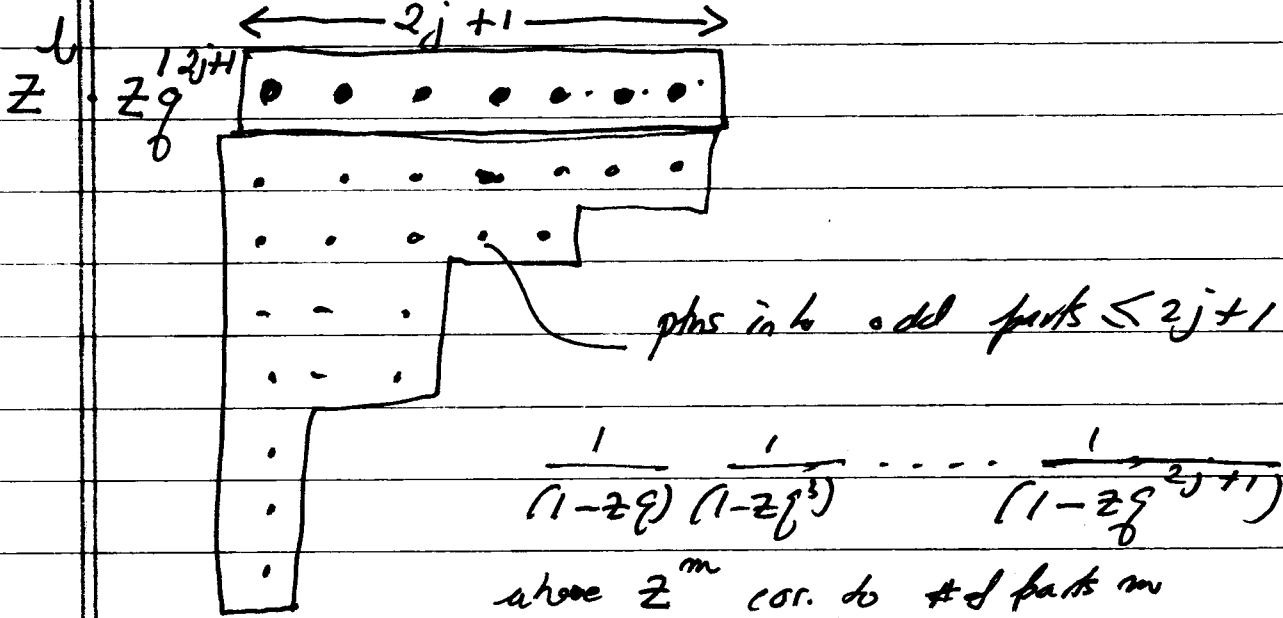 2j + 1
z^l · z^1 q^{2j+1}
ptns into odd parts ≤ 2j + 1
\frac{1}{(1-zq)} \frac{1}{(1-zq^3)} ..... \frac{1}{(1-zq^{2j+1})}
where z^m cor. to # of parts m